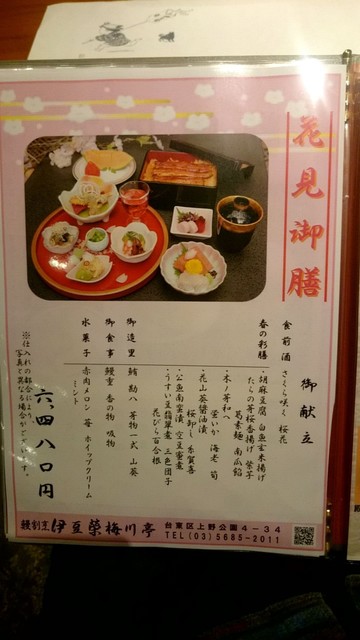 花見御膳
御献立
食前酒 さくら咲く 桜花
春の彩膳
・胡麻豆腐 白魚玄米揚げ
たらの芽桜香揚げ 蟹子
葛素麺 南瓜餡
・木ノ芽和へ
蛍いか 海老 筍
・花山葵醤油漬
桜卸し 糸賀喜
・公魚南蛮漬 空豆蜜煮
・うすい豆翡翠煮 三色団子
花びら百合根
御造里 鮪 勘八 芽物一式 山葵
御食事 鰻重 香の物 吸物
水菓子 赤肉メロン 苺 ホイップクリーム
ミント
六、四八〇円
※仕入れの都合により、
写真と異なる場合がございます。
鰻割烹 伊豆榮 梅川亭
台東区上野公園4-34
TEL(03)5685-2011